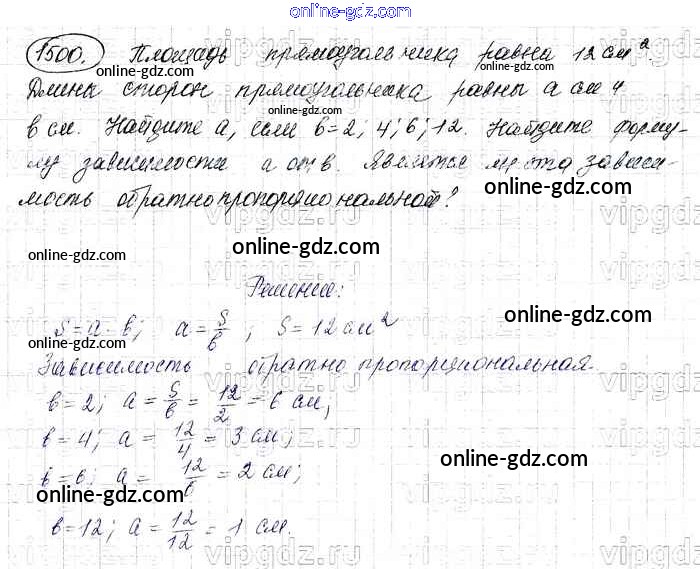 online-gdz.com
1500. Площадь прямоугольника равна 12 см².
online-gdz.com online-gdz.com
Длины сторон прямоугольника равны a см и
online-gdz.com
b см. Найдите a, если b=2; 4; 6; 12. Найдите форму-
лу зависимости a от b. Является ли эта зависи-
мость обратно пропорциональной?
online-gdz.com
online-gdz.com online-gdz.com
Решение:
online-gdz.com
S=a·b; a=S/b; S=12 см²
Зависимость обратно пропорциональная.
online-gdz.com
b=2; a=S/b=12/2=6 см;
b=4; a=12/4=3 см;
online-gdz.com
b=6; a=12/6=2 см;
online-gdz.com
b=12; a=12/12=1 см.
online-gdz.com